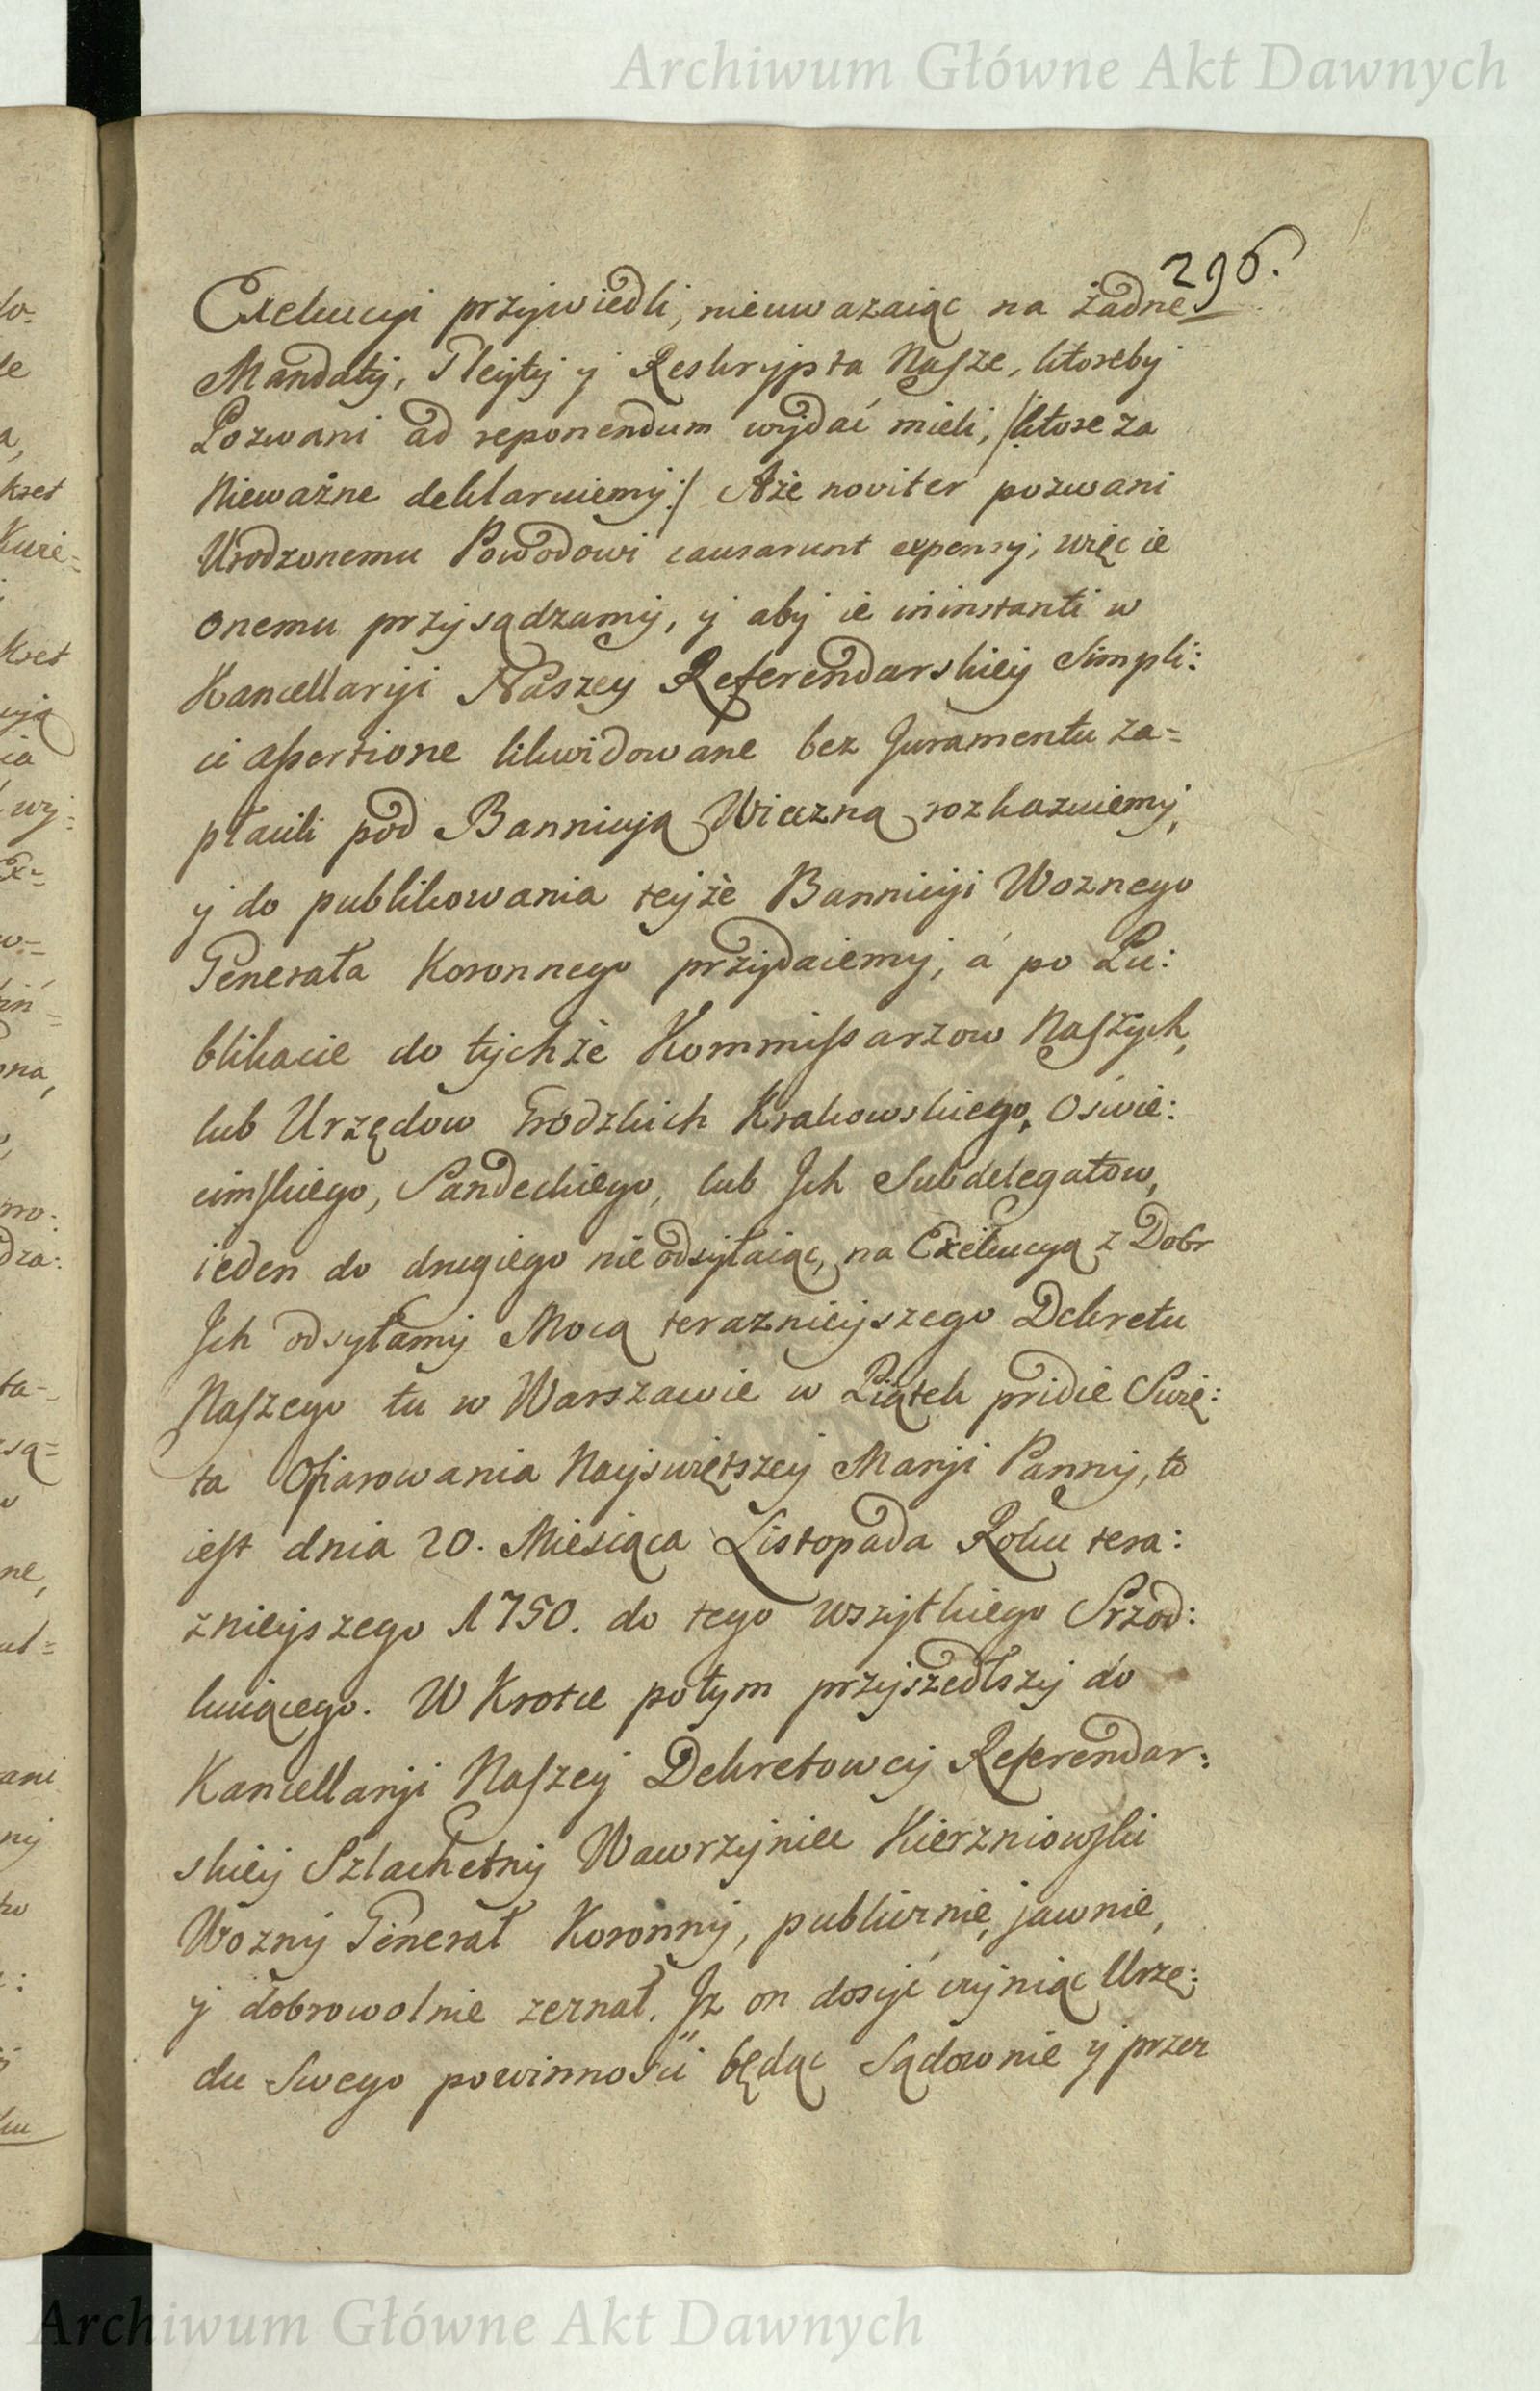 Archiwum Główne Akt Dawnych
296.
Exekucyi przywiedli, nieuwazaiąc na żadne
Mandaty, Gleyty y Reskrypta Nasze, ktoreby
Pozwani ad reponendum wydać mieli, /:ktore za
Nieważne deklaruiemy:/ Aże noviter pozwani
Urodzonemu Powodowi causarunt expensy, więc ie
onemu przysądzamy, y aby ie in instanti w
Kancellaryi Naszey Referendarskiey Simpli:
ci assertione likwidowane bez Juramentu za=
płacili pod Bannicyą Wieczną rozkazuiemy,
y do publikowania teyże Bannicyi Woznego
Generała Koronnego przydaiemy, á po Pu:
blikacie do tychże Kommissarzow Naszych,
lub Urzędow Grodzkich Krakowskiego, Oświe:
cimskiego, Sandeckiego, lub Ich Subdelegatow,
ieden do drugiego nie odsyłaiąc, na Exekucyą z Dobr
Ich odsyłamy Mocą teraznieyszego Dekretu
Naszego tu w Warszawie w Piątek pridie Swię:
ta Ofiarowania Nayswiętszey Maryi Panny, to
iest dnia 20. Miesiąca Listopada Roku tera:
znieyszego 1750. do tego wszytkiego Przod:
kuiącego. W Krotce potym przyszedłszy do
Kancellaryi Naszey Dekretowey Referendar:
skiey Szlachetny Wawrzyniec Kierzniowski
Wozny Generał Koronny, publicznie, jawnie,
y dobrowolnie zeznał. Iz on dosyć czyniąc Urzę:
du Swego powinności będąc Sądownie y przez
Archiwum Główne Akt Dawnych